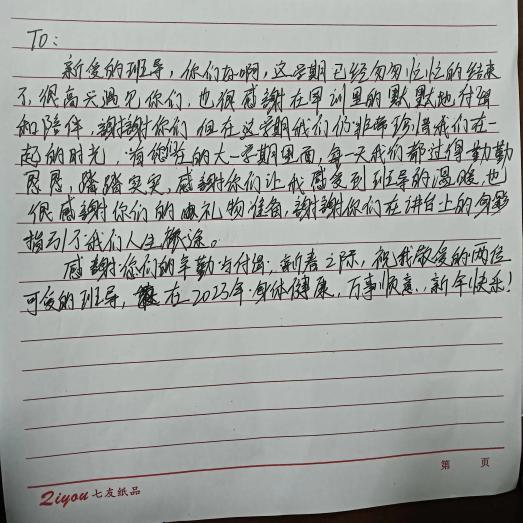 To:
亲爱的班导，你们好啊，这学期已经匆匆忙忙的结束
了，很高兴遇见你们，也很感谢在军训里的默默地付出
和陪伴，謝謝你们 但在这学期我们仍非常珍惜我们在一
起的时光，有他的大一学期里面，每一天我们都过得勤勤
恳恳，踏踏实实，感謝你们让我感受到班导的温暖，也
很感謝你们的礼物准备，謝謝你们在讲台上的身影
指引了我们人生旅途。
感謝你们的辛勤与付出，新春之际，祝我敬爱的两位
可爱的班导，在2023年身体健康，万事顺意，新年快乐！
第 页
Qiyou 七友纸品